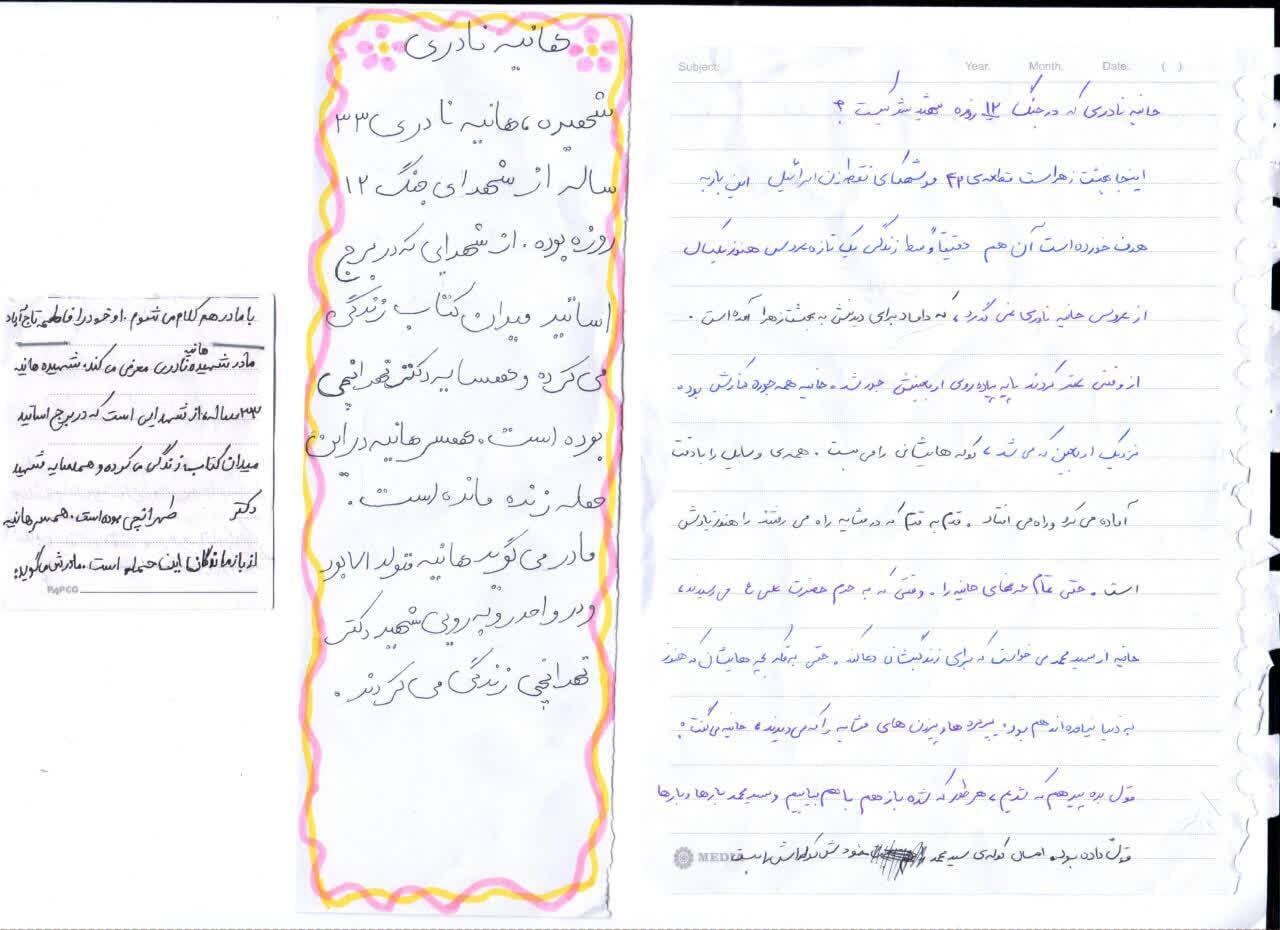 Subject:
Year. Month. Date. ( )
حانیه نادری که در جنگ ۱۲ روزه شهید شد کیست ؟
اینجا بهشت زهراست قطعه‌ی ۴۲ موشکهای نقطه‌زن اسرائیل این بار به
هدف خورده است آن هم دقیقاً وسط زندگی یک تازه عروس هنوز یکسال
از عروسی حانیه نادری نمی گذرد، که داماد برای دیدنش به بهشت زهرا آمده است.
از وقتی عقد کردند پایه پیاده‌روی اربعینش جور شد. حانیه همه جوره کنارش بود.
نزدیک اربعین که می شد، کوله هایشان را می بست. همه‌ی وسایل را با دقت
آماده می کرد و راه می افتاد. قدم به قدم که در مشایه راه می رفتند را هنوز یادش
است. حتی تمام حرفهای حانیه را. وقتی که به حرم حضرت علی ع می رسیدند،
حانیه از سید محمد می خواست که برای زندگیشان دعا کند. حتی به فکر بچه هایشان که هنوز
به دنیا نیامده‌اند هم بود. پیرمردها و پیرزن های مشایه را که می دیدند، حانیه می گفت:
قول بده پیر هم که شدیم، هر طور که شده باز هم با هم بیاییم و سید محمد بارها و بارها
قول داده بود. امسال کوله‌ی سید محمد خودش کوله‌اش را بست
هانیه نادری
شهیده، هانیه نادری ۳۳
ساله از شهدای جنگ ۱۲
روزه بوده. از شهدایی که در برج
اساتید میدان کتاب زندگی
می کرده و همسایه دکتر تهرانچی
بوده است. همسر هانیه در این
حمله زنده مانده است.
مادر می گوید هانیه متولد ۷۱ بود
و در واحد روبه رویی شهید دکتر
تهرانچی زندگی می کردند.
با مادر هم کلام می شوم. او خود را فاطمه تاج‌آباد
مادر شهیده هانیه نادری معرفی می کند. شهیده هانیه
۳۳ ساله، از شهدایی است که در برج اساتید
میدان کتاب زندگی می کرده و همسایه شهید
دکتر طهرانچی بوده است. همسر هانیه
از بازماندگان این حمله است. مادرش می گوید:
PAPCO